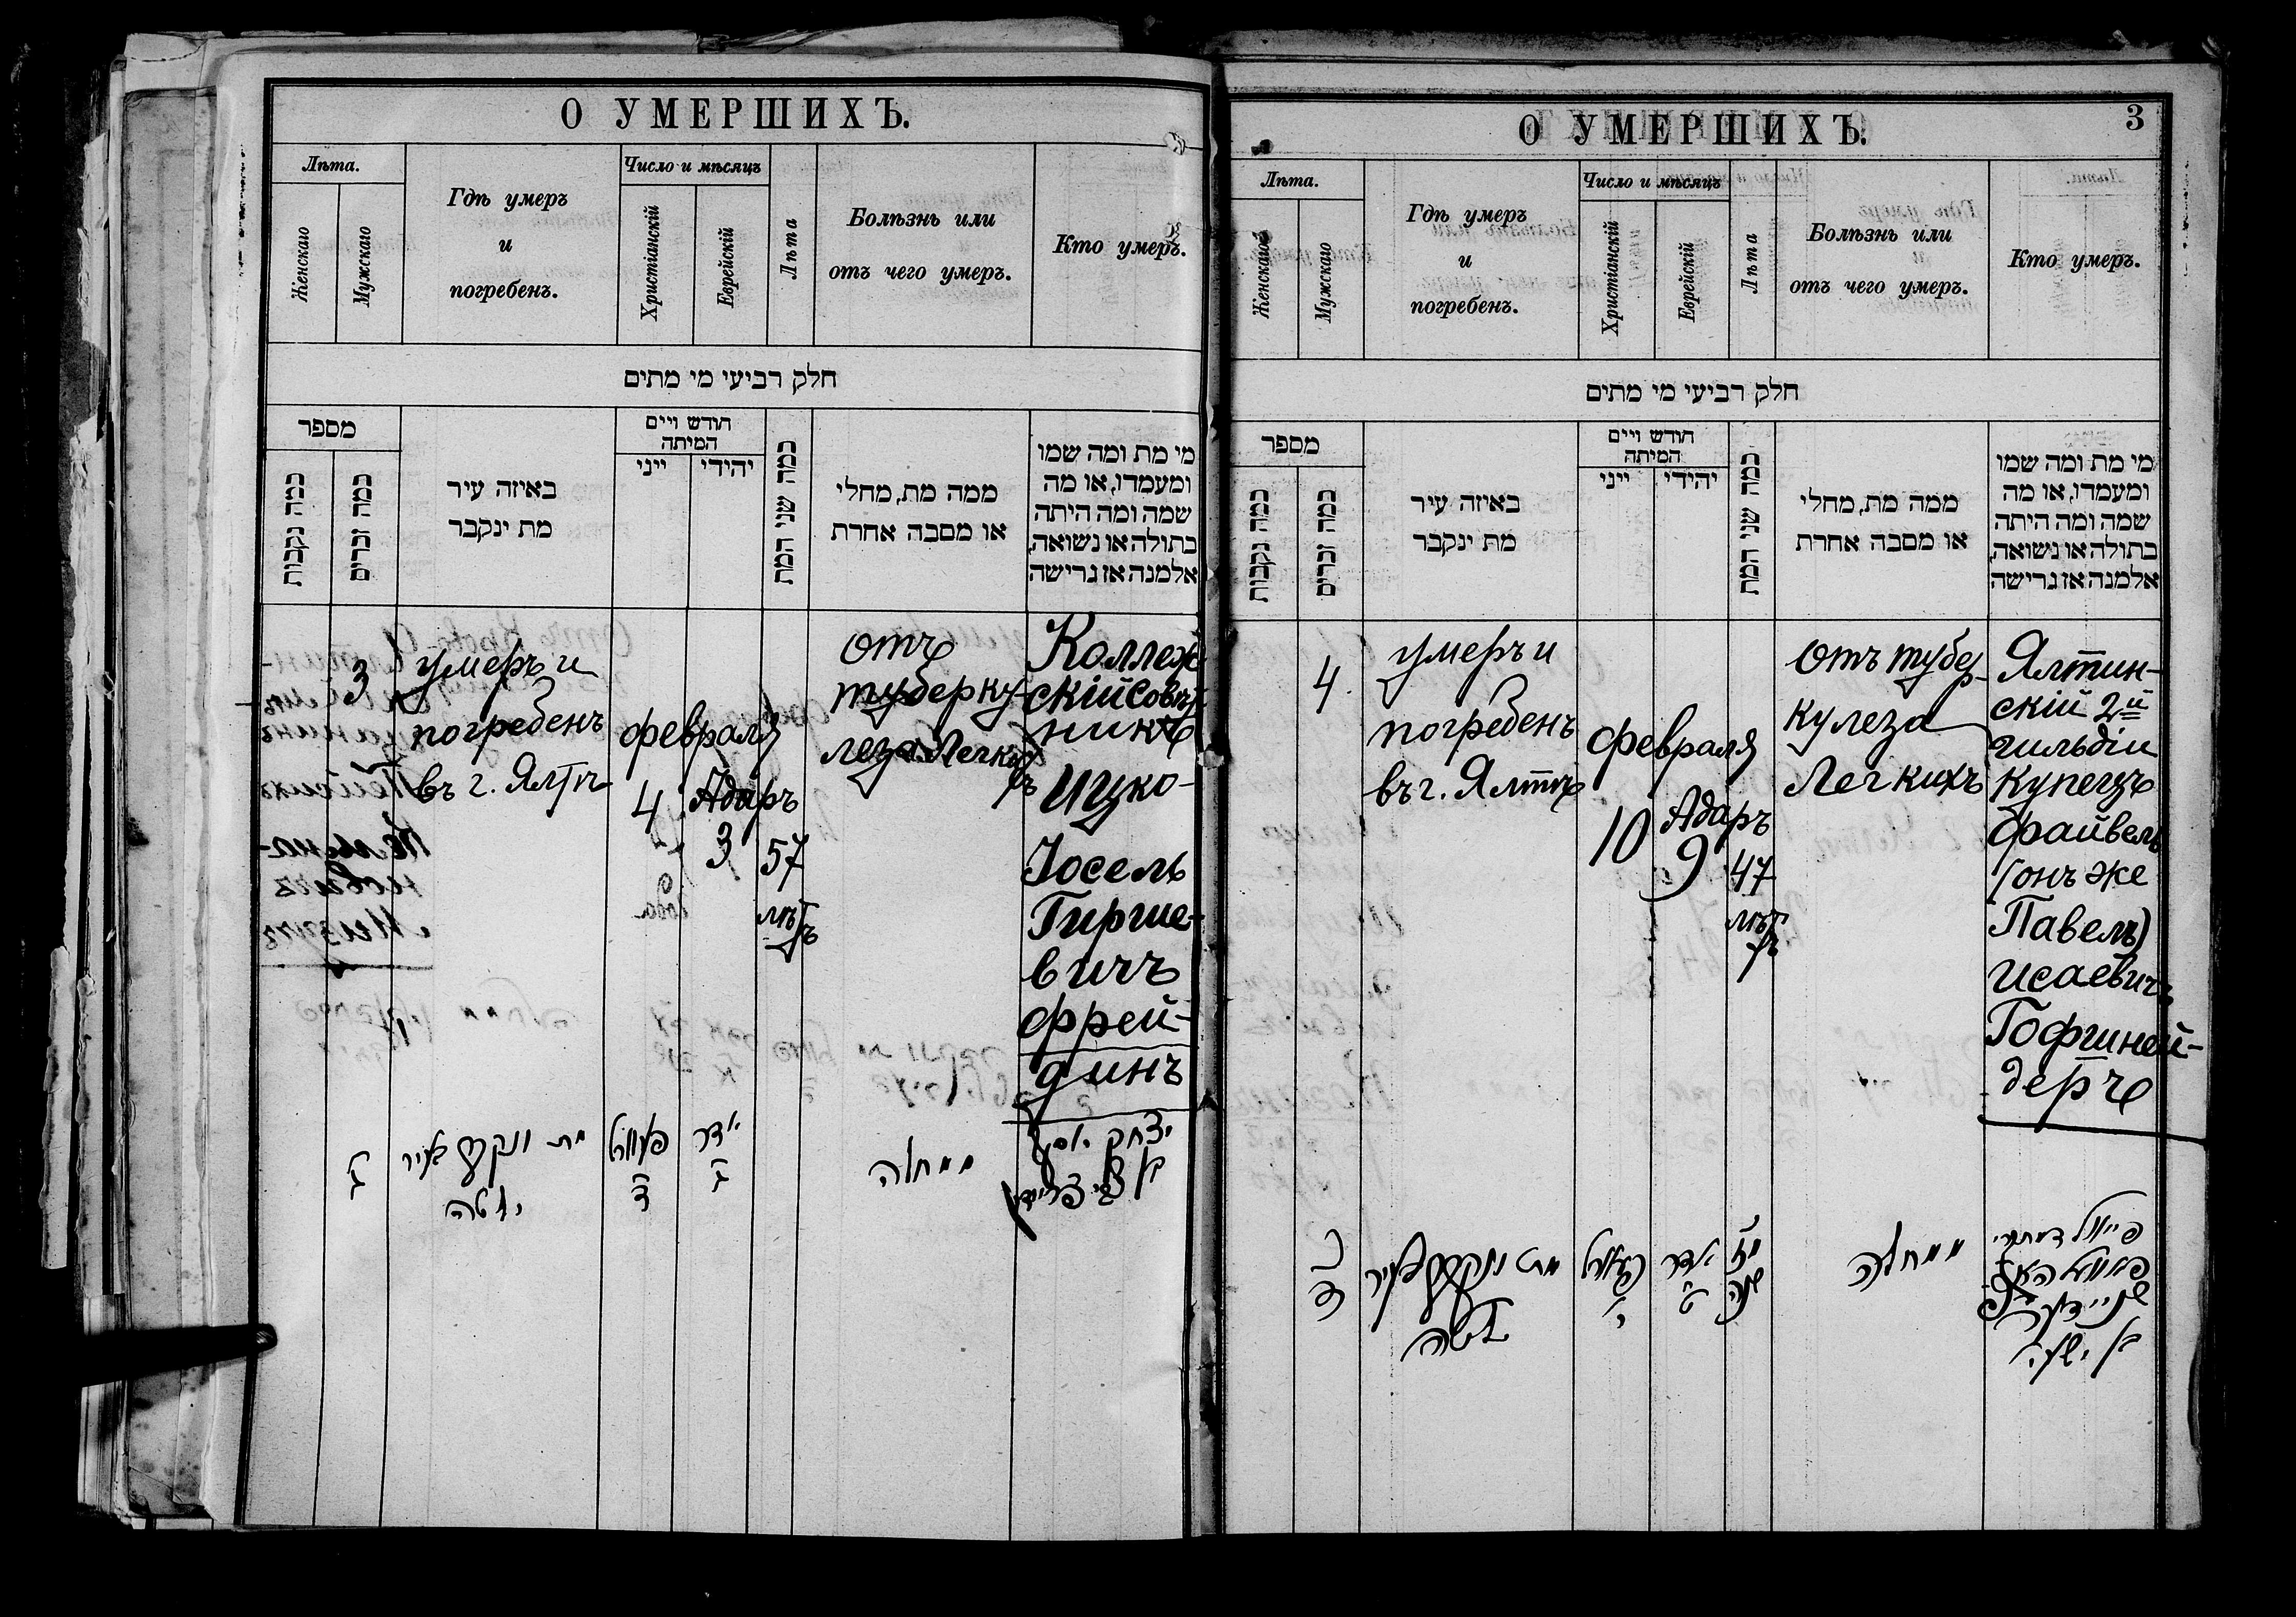 О УМЕРШИХЪ.
Лѣта.
Женскаго
Мужскаго
Гдѣ умеръ
и
погребенъ.
Число и мѣсяцъ
Христіанскій
Еврейскій
Лѣта
Болѣзнь или
отъ чего умеръ.
Кто умеръ.
חלק רביעי מי מתים
מספר
כמה נקבות
כמה זכרים
באיזה עיר
מת ינקבר
חודש ויים
המיתה
ייני
יהודי
כמה שני המת
ממה מת, מחלי
או מסבה אחרת
מי מת ומה שמו
ומעמדו, או מה
שמה ומה היתה
בתולה או נשואה,
אלמנה אז גרישה
3
умеръ и
погребенъ
въ г. Ялтѣ
февраля
4
Адаръ
3
57
лѣтъ
отъ
туберку-
леза Легкихъ
Коллеж
скій Совѣт
никъ
Ицко-
Іосель
Гирше-
вичъ
Фрей-
динъ
ג
מת ונקבר בעיר
יאלטה
ד
אדר
ג
ממחלה
יצחק יוסף
О УМЕРШИХЪ.
3
Лѣта.
Женскаго
Мужскаго
Гдѣ умеръ
и
погребенъ.
Число и мѣсяцъ
Христіанскій
Еврейскій
Лѣта
Болѣзнь или
отъ чего умеръ.
Кто умеръ.
חלק רביעי מי מתים
מספר
כמה נקבות
כמה זכרים
באיזה עיר
מת ינקבר
חודש ויים
המיתה
ייני
יהודי
כמה שני המת
ממה מת, מחלי
או מסבה אחרת
מי מת ומה שמו
ומעמדו, או מה
שמה ומה היתה
בתולה או נשואה,
אלמנה אז גרישה
4.
умеръ и
погребенъ
въ г. Ялтѣ
февраля
10
Адаръ
9
47
лѣтъ
отъ тубер-
кулеза
Легкихъ
Ялтин-
скій 2й
гильдіи
купецъ
Файвель
(онъ же
Павелъ)
Исаевичъ
Гофшней-
деръ
ד
מת ונקבר בעיר
יאלטה
י
אדר
ט
מז
שנה
ממחלה